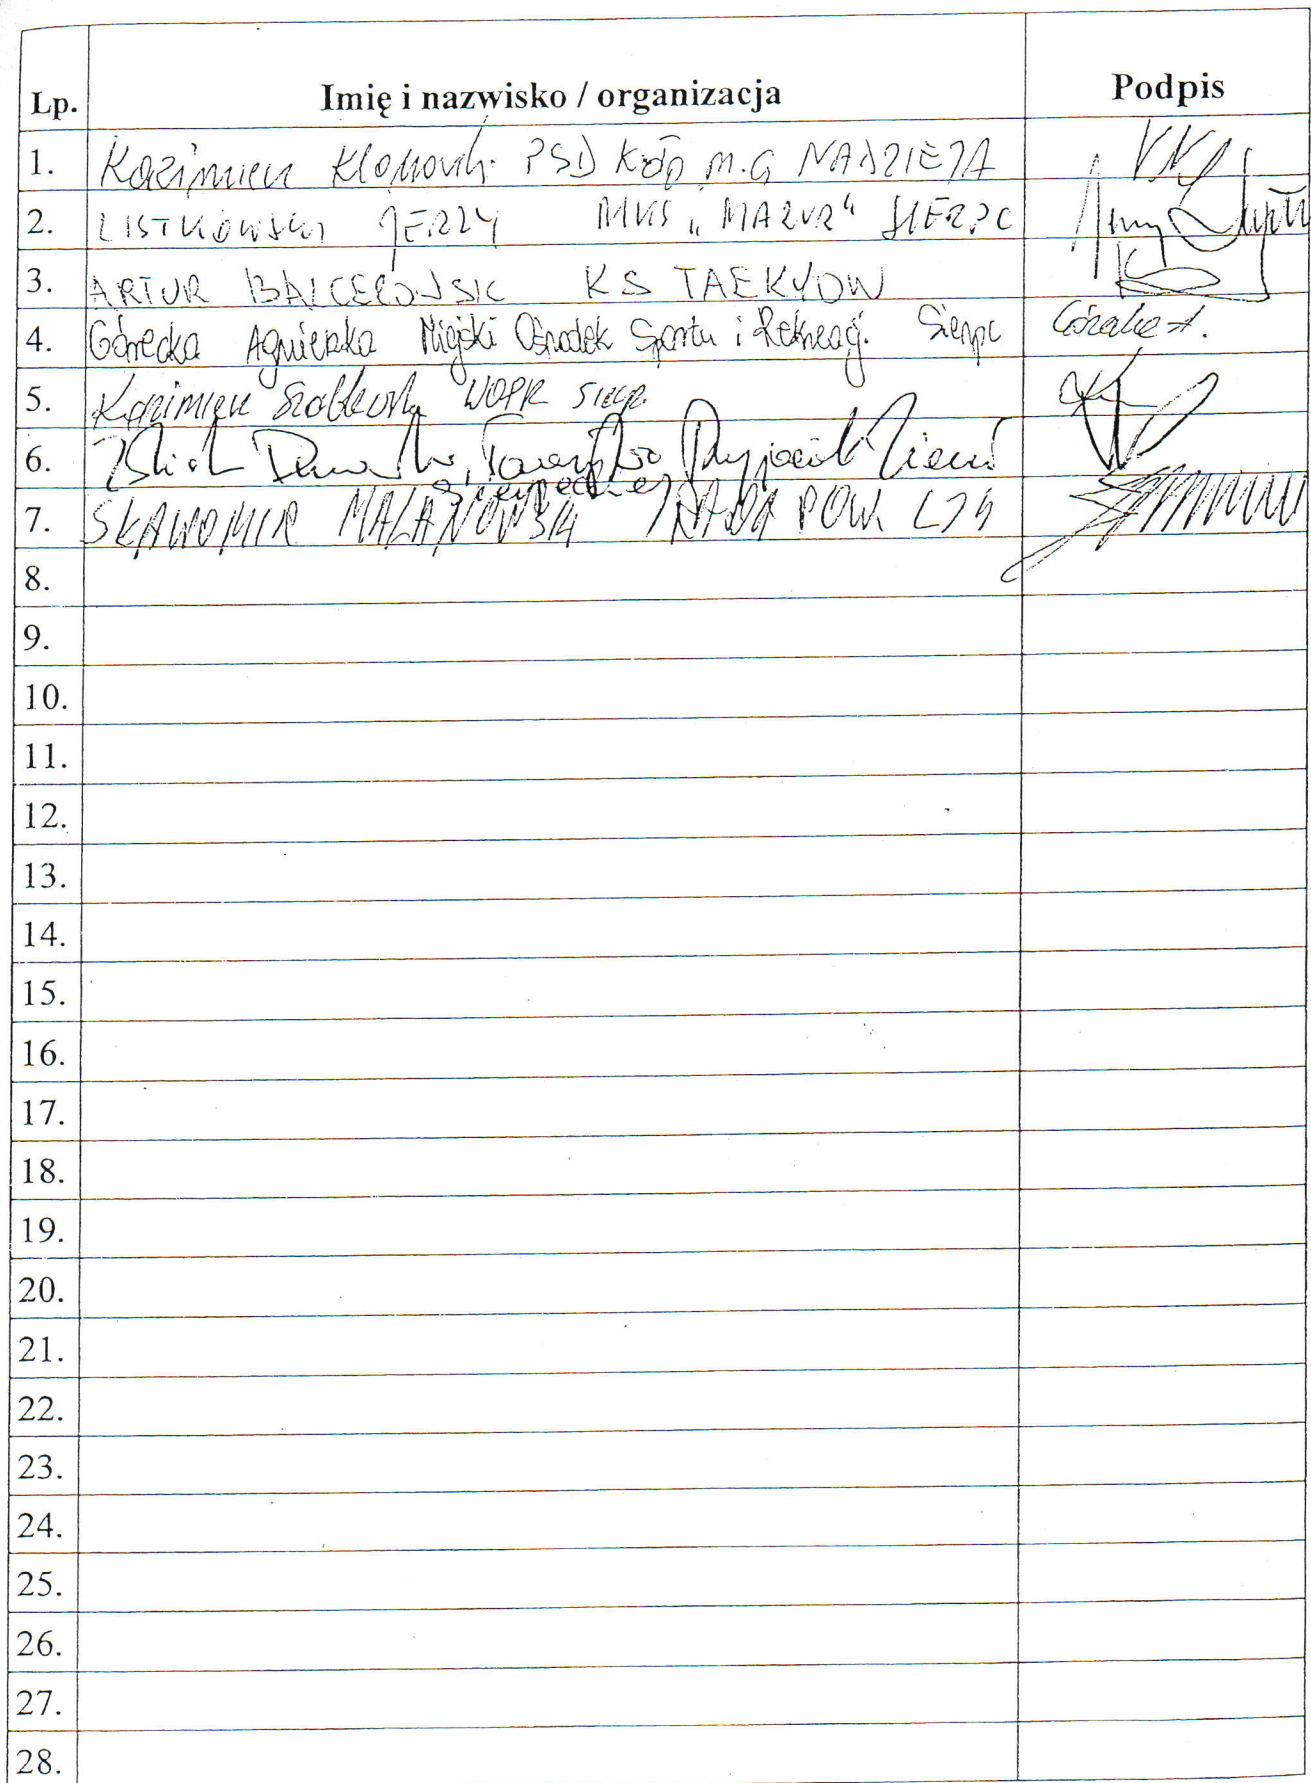 Lp. Imię i nazwisko / organizacja Podpis
1. Kazimierz PSD Koło M.G NADZIEJA
2. LISTKOWSKI JERZY MKS „MAZUR" SIERPC
3. ARTUR KS TAEKYOW
4. Górecka Agnieszka Miejski Ośrodek Sportu i Rekreacji Sierpc Górecka A.
5. Kazimierz WOPR
6. Towarzystwo Przyjaciół Ziemi
Sierpeckiej
7. SŁAWOMIR MALANOWSKI RADA POW. LZS
8.
9.
10.
11.
12.
13.
14.
15.
16.
17.
18.
19.
20.
21.
22.
23.
24.
25.
26.
27.
28.